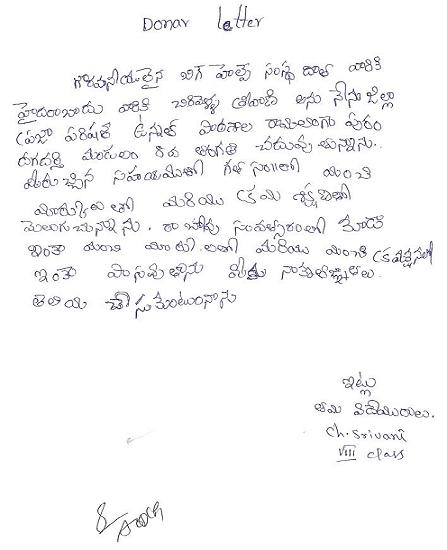 Donar letter
గౌరవనీయులైన బిగ్ హెల్ప్ సంస్థ దాత వారికి
హైదరాబాదు వారికి చిరివెళ్ళ శ్రీవాణి అను నేను జిల్లా
ప్రజా పరిషత్ ఉన్నత పాఠశాల రామలింగా పురం
దుగదర్తి మండలం 8వ తరగతి చదువుతున్నాను.
మీరు చేసిన సహాయముతో గత సం॥లో మంచి
మార్కులతో మరియు క్రమ శిక్షణతో
మెలుగుచున్నాను. రాబోవు సంవత్సరంలో కూడా
ఇంతా మంచి మార్కులతో మరియు మంచి క్రమశిక్షణతో
ఇంతా పాసవుతాను మీకు నా కృతజ్ఞతలు.
తెలియ చేసుకుంటున్నాను
ఇట్లు
తమ విదేయురాలు.
Ch. Srivani
VIII class